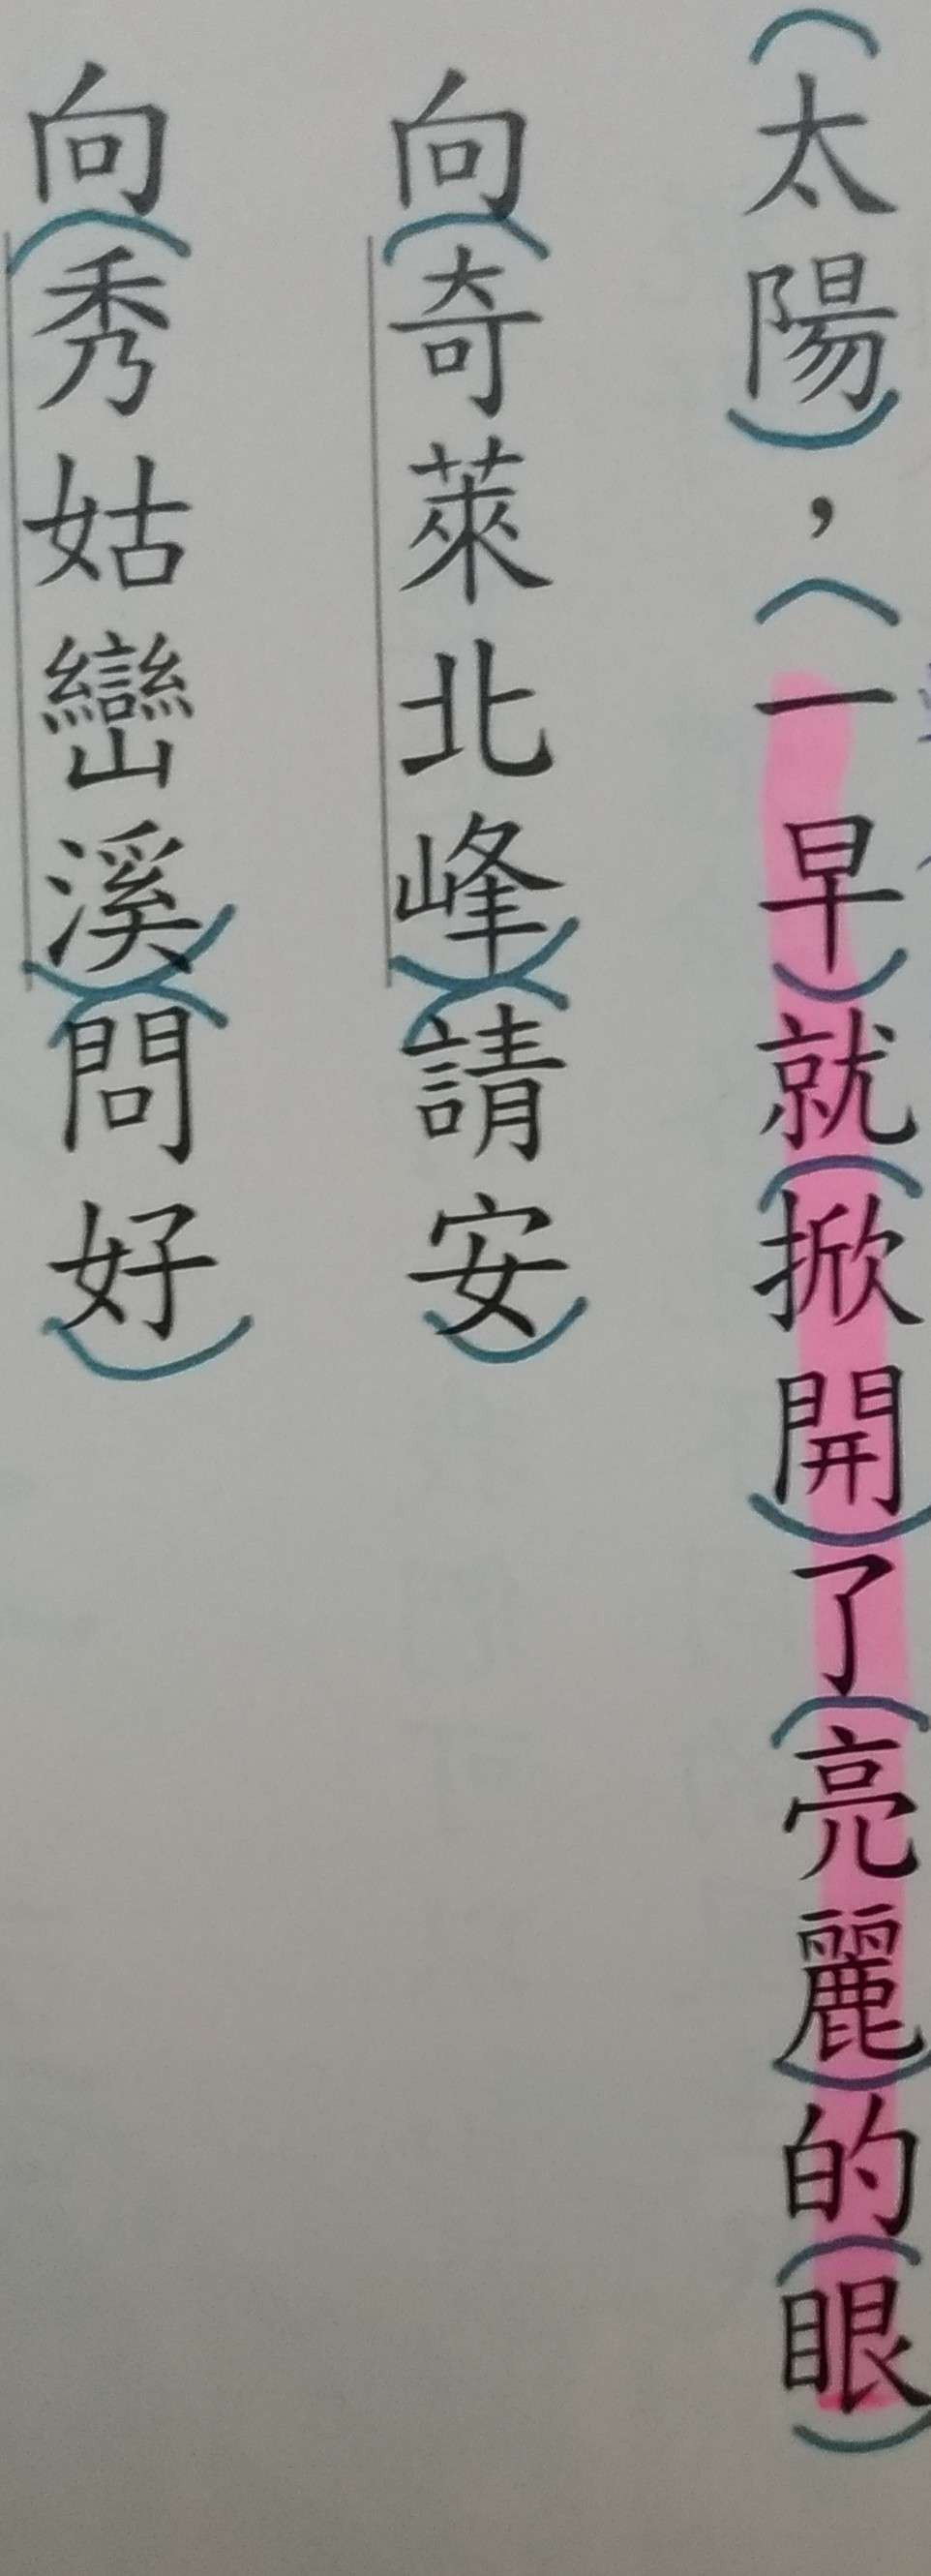 太陽，一早就掀開了亮麗的眼
向奇萊北峰請安
向秀姑巒溪問好